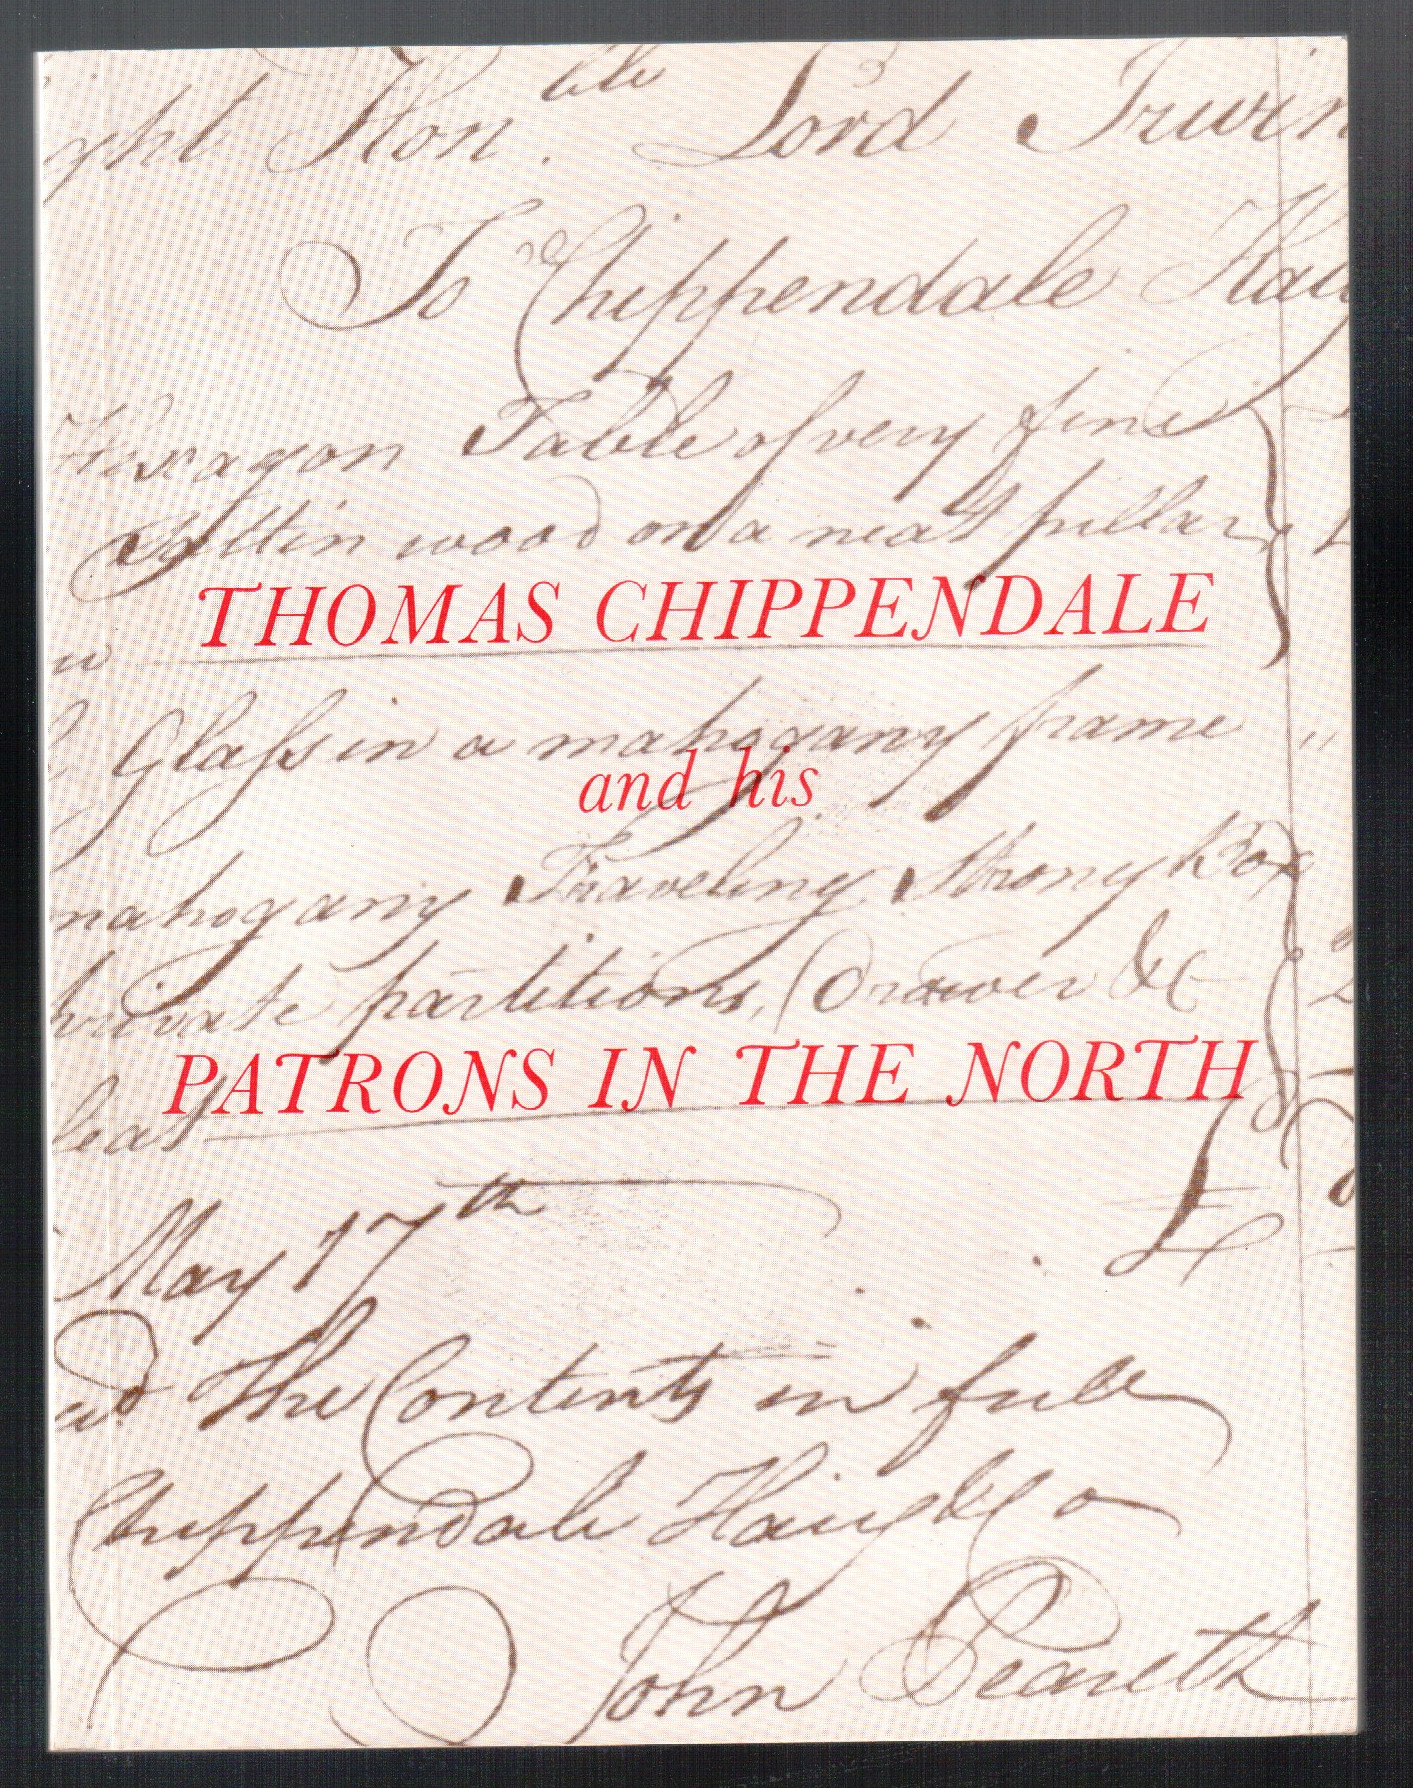 ght Hon. ble Lord Irwin
To Chippendale Haig
Hexagon Table of very fine
Sattin wood on a neat pillar
THOMAS CHIPPENDALE
Glass in a mahogany frame "
and his
mahogany Traveling Strong Box
private partitions, Drawer &c
PATRONS IN THE NORTH
May 17th £
the Contents in full
Chippendale Haig & Co
John Peareth